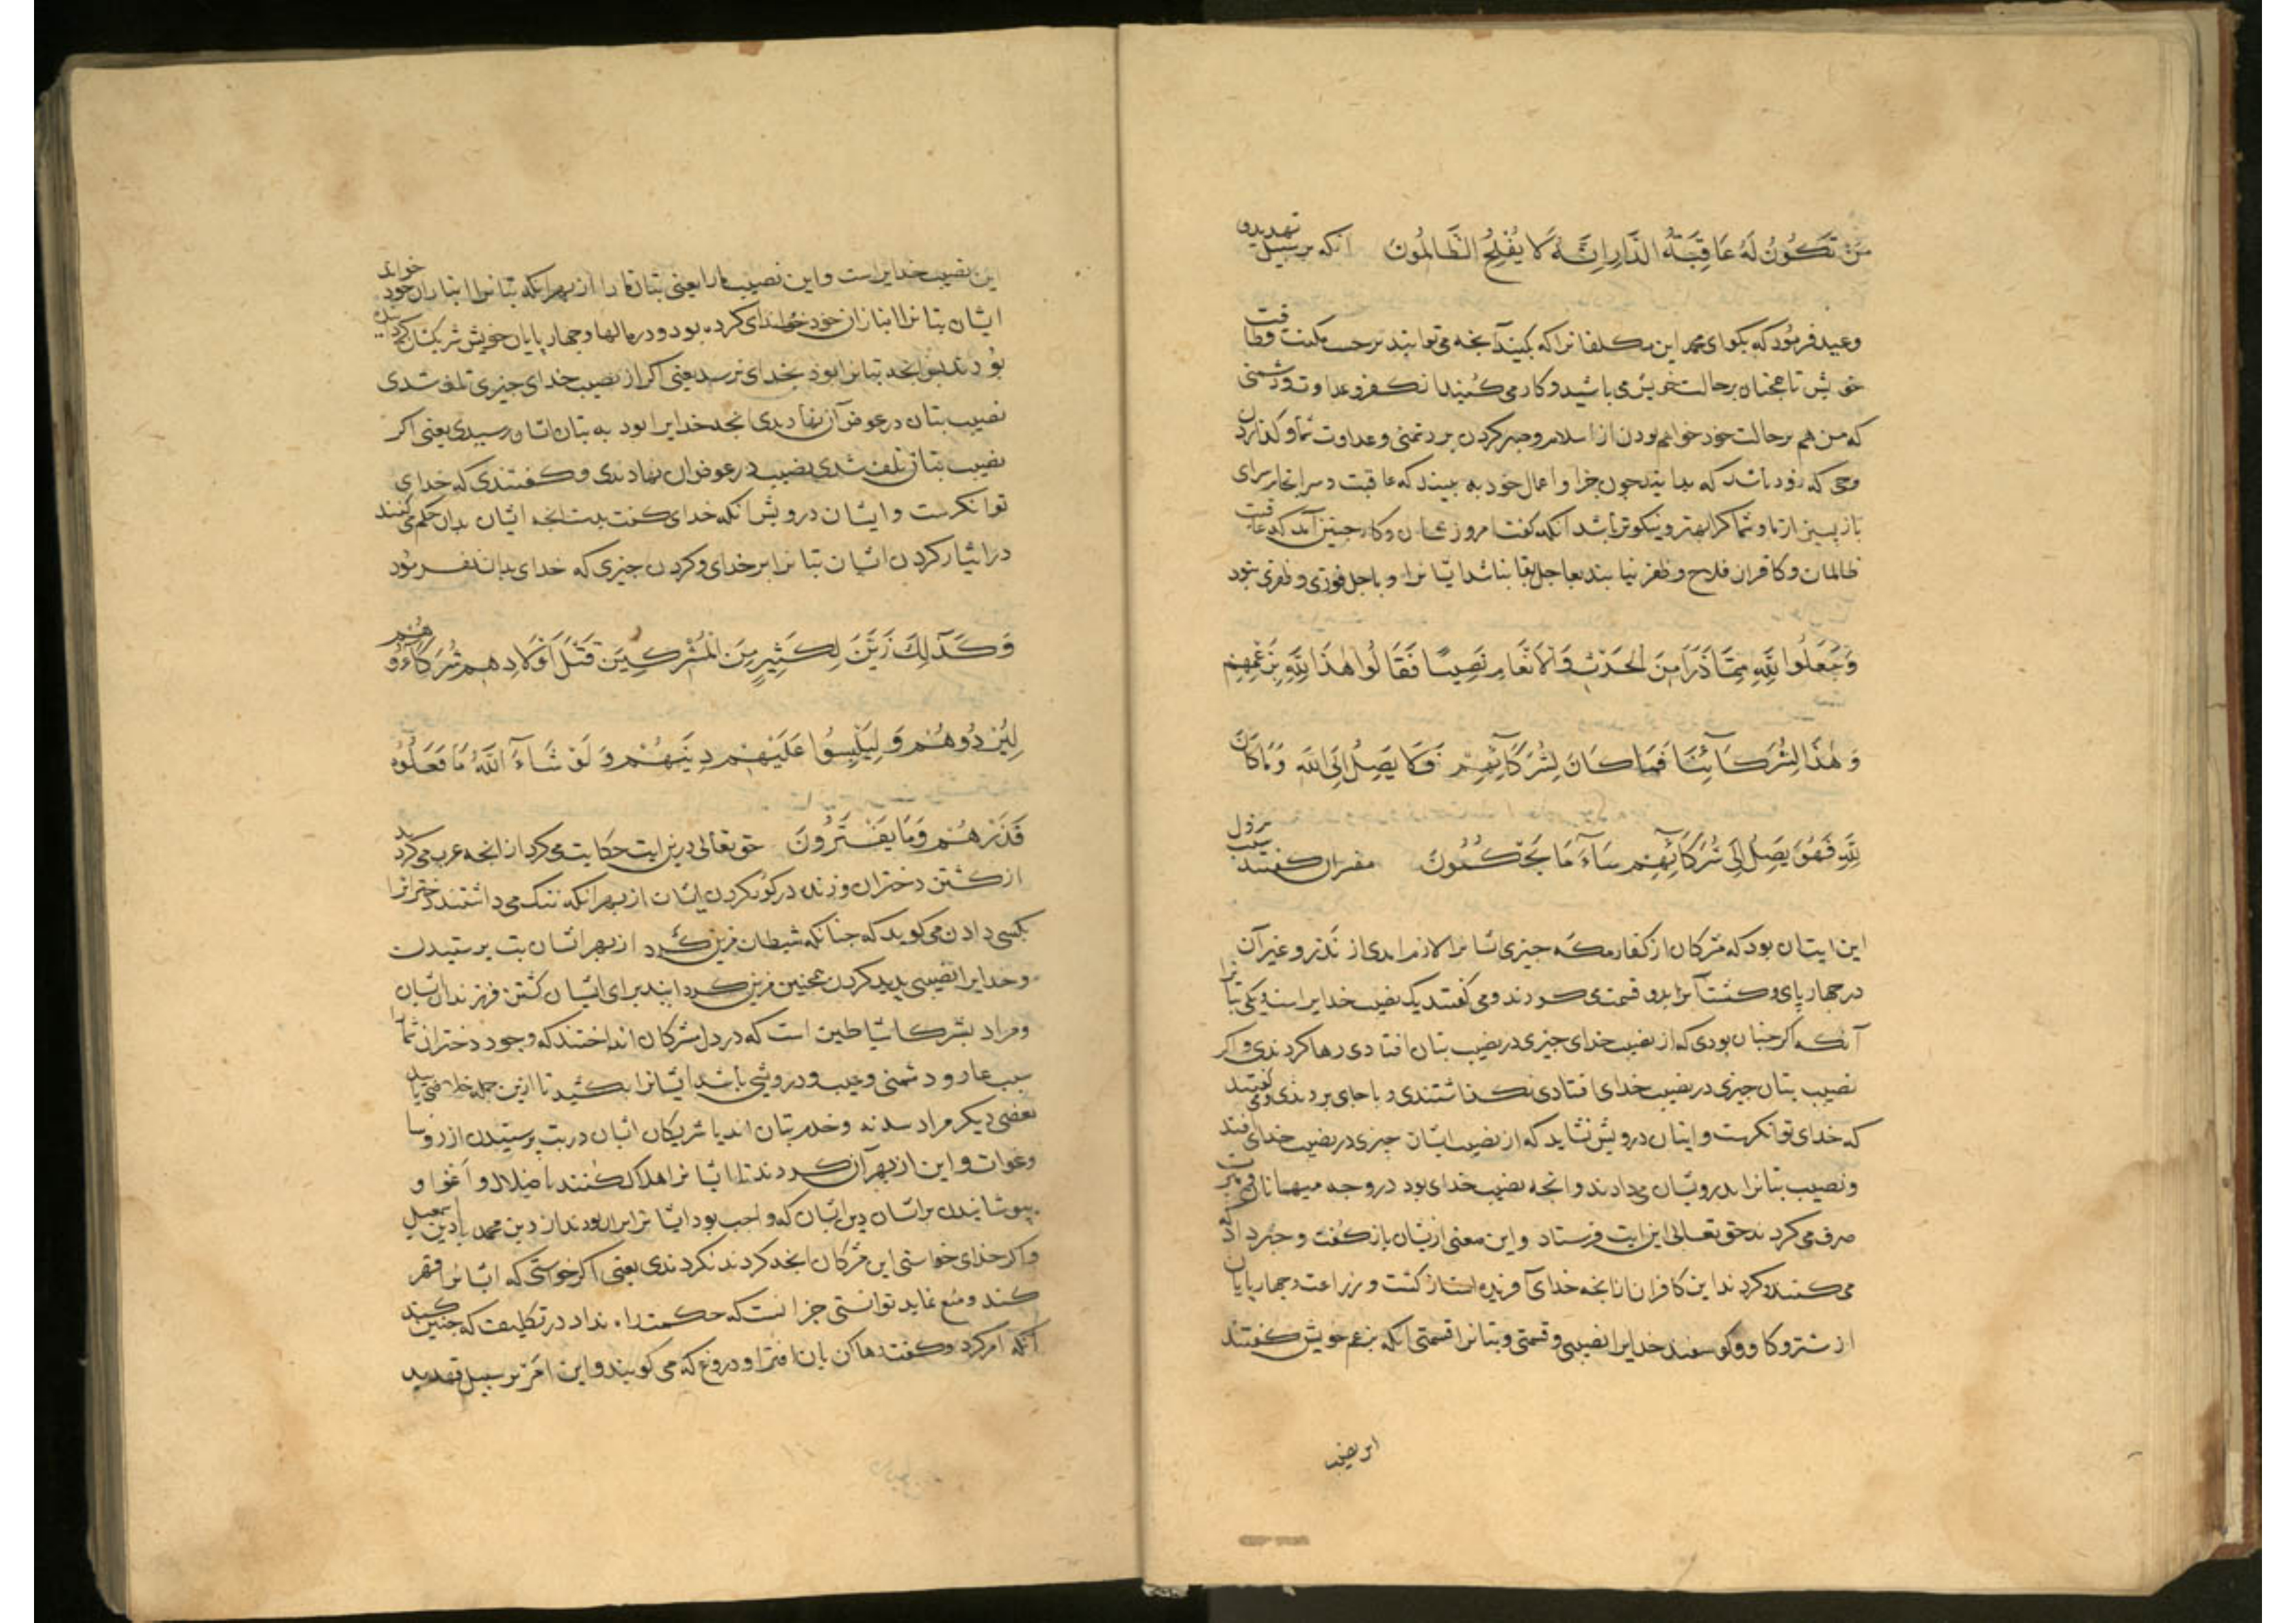 مَنْ تَكُونُ لَهُ عَاقِبَةُ الدَّارِ اِنَّهُ لَا يُفْلِحُ الظَّالِمُونَ آنکه بر سبیل تهدید و
وعید فرمود که بکوای محمد این مکلفانرا که بکنید آنجه می توانید بر حسب مکنت وطاقت
خویش تا همجنان بر حالت خویش می باشید وکار می کنید از کفر وعداوت ودشمنی
که من هم بر حالت خود خواهم بودن از اسلام وصبر کردن بر دشمنی وعداوت شما وکذاردن
وحی که زود باشد که بدانید جون جزا واعمال خود به بینید که عاقبت وسرانجام سرای
بازپسین از ما وشما کرا بهتر ونیکوتر باشد آنکه کفت امروز شان وکار جنین آمد که عاقبت
ظالمان وکافران فلاح وظفر نیابند بعاجل بقا نباشد ایشانرا وباجل فوزی وظفری نبود
وَجَعَلُوا لِلّٰهِ مِمَّا ذَرَاَ مِنَ الْحَرْثِ وَالْاَنْعَامِ نَصِيبًا فَقَالُوا هٰذَا لِلّٰهِ بِزَعْمِهِمْ
وَهٰذَا لِشُرَكَآئِنَا فَمَا كَانَ لِشُرَكَآئِهِمْ فَلَا يَصِلُ اِلَى اللّٰهِ وَمَا كَانَ
لِلّٰهِ فَهُوَ يَصِلُ اِلٰى شُرَكَآئِهِمْ سَآءَ مَا يَحْكُمُونَ مفسران کفتند سبب نزول
این ایتان بود که مشرکان از کفار مکه جیزی ایشانرا لازم امدی از نذر وغیر آن
در جهارپای وکشت آنرا بدو قسمت کردندی ومی کفتند یک نصیب خدایراست ویکی بتانرا
آنکه اکر جنان بودی که از نصیب خدای جیزی در نصیب بتان افتادی رها کردندی واکر
نصیب بتان جیزی در نصیب خدای افتادی نکذاشتندی وباجای بردندی وکفتندی
که خدای توانکرست وایشان درویش نشاید که از نصیب ایشان جیزی در نصیب خدای افتد
ونصیب بتانرا بدرویشان می دادند وانجه نصیب خدای بود در وجه میهمانان
صرف می کردند حق تعالی این ایت فرستاد واین معنی ازیشان باز کفت وخبر داد
می کنند وکردند این کافران از انجه خدای آفریده است از کشت وزراعت وجهارپایان
از شتر وکاو وکوسفند خدایرا نصیبی وقسمتی وبتانرا قسمتی آنکه بزعم خویش کفتند
این نصیب
این نصیب خدایراست واین نصیب مارا یعنی بتان مارا از بهر انکه بتانرا انبازان خود خواند
ایشان بتانرا انبازان خود خدای کرده بود ودر مالها وجهارپایان خویش شریکشان کرده
بودند بس انجه بتانرا بود بخدای نرسد یعنی اکر از نصیب خدای جیزی تلف شدی
نصیب بتان در عوض آن نهادندی انجه خدایرا بود به بتان ایشان رسیدی یعنی اکر
نصیب بتان تلف شدی نصیب در عوض ان نهادندی وکفتندی که خدای
توانکرست وایشان درویش آنکه خدای کفت بدست انجه ایشان بدان حکم می کنند
در ایثار کردن ایشان بتانرا بر خدای وکردن جیزی که خدای بدان نفرمود
وَكَذٰلِكَ زَيَّنَ لِكَثِيرٍ مِنَ الْمُشْرِكِينَ قَتْلَ اَوْلَادِهِمْ شُرَكَآؤُهُمْ
لِيُرْدُوهُمْ وَلِيَلْبِسُوا عَلَيْهِمْ دِينَهُمْ وَلَوْ شَآءَ اللّٰهُ مَا فَعَلُوهُ
فَذَرْهُمْ وَمَا يَفْتَرُونَ حق تعالی درین ایت حکایت می کرد از انجه عرب می کردند
از کشتن دختران وزنده در کور کردن ایشان از بهر انکه ننک می داشتند دخترانرا
بکسی دادن می کوید که جنانکه شیطان مزین کرد از بهر ایشان بت پرستیدن
وخدایرا نصیبی پدید کردن همجنین مزین کردانید برای ایشان کشتن فرزندان ایشان
ومراد بشرکا شیاطین است که در دل مشرکان انداختند که وجود دختران شمارا
سبب عار ودشمنی وعیب ودرویشی باشد ایشانرا بکشید تا ازین جمله خلاصی یابید
بعضی دیکر مراد سدنه وخدم بتان اند یا شریکان ایشان در بت پرستیدن از روسا
وغوات واین از بهر آن کردند تا ایشانرا هلاک کنند باضلال واغوا و
بپوشانیدن بر ایشان دین ایشان که واجب بود ایشانرا بران بودند از دین محمد یا دین اسمعیل
واکر خدای خواستی این مشرکان انجه کردند نکردندی یعنی اکر خواستی که ایشانرا قهر
کند ومنع نماید توانستی جز انست که حکمت راه نداد در تکلیف که جنین کند
آنکه امر کرد وکفت رها کن با ان افترا ودروغ که می کویند واین امر بر سبیل تهدید